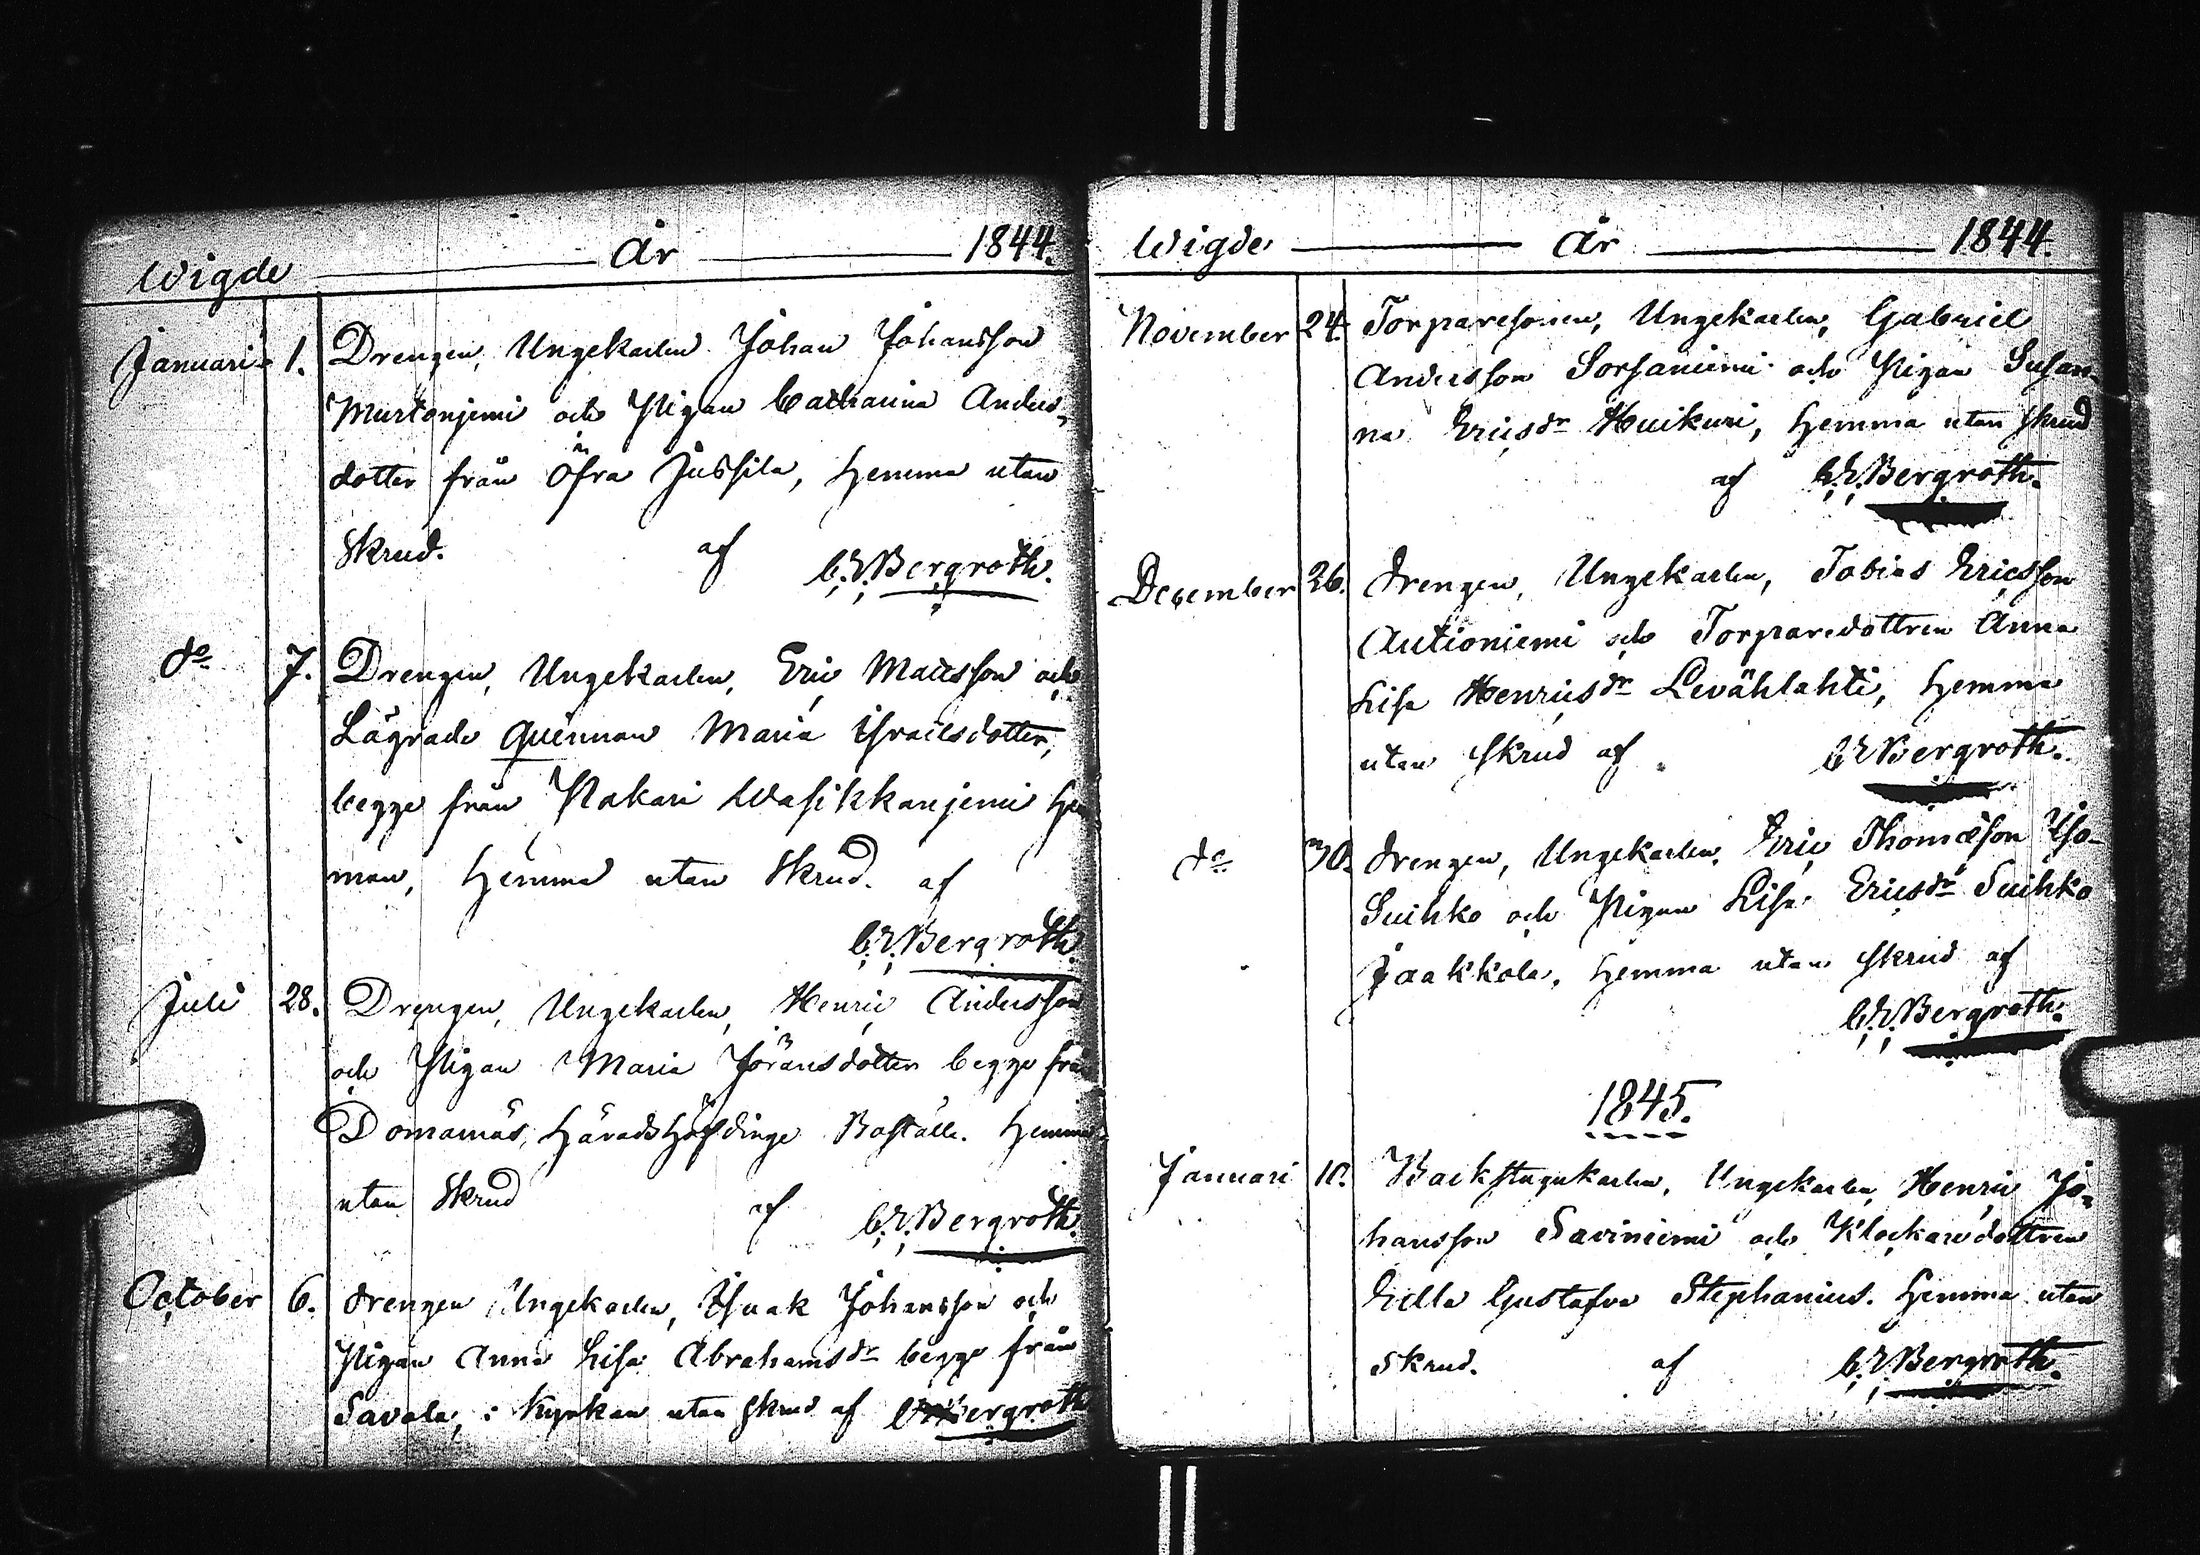 Wigde År 1844.
Januari 1. Drengen, Ungekarlen Johan Johansson
Murtonjemi och Pigan Catharina Anders-
dotter från Öfra Jussila, hemma utan
Skrud. af C.E. Bergroth.
do 7. Drengen, Ungekarlen, Eric Matsson och
Lägrade Quinnan Maria Israelsdotter,
begge från Pakari Wasikkanjemi hem-
man, hemma utan Skrud. af
C.E. Bergroth.
Juli 28. Drengen, Ungekarlen, Henric Andersson
och Pigan Maria Jöransdotter begge från
Domarnäs, Häradshöfdinge Boställe. hemma
utan Skrud af C.E. Bergroth.
October 6. drengen Ungekarlen, Isaak Johansson och
Pigan Anna Lisa Abrahamsdr begge från
Savola, i Kyrkan utan skrud af C.E. Bergroth
Wigde År 1844.
November 24. Torparesonen, Ungekarlen, Gabriel
Andersson Sorsaniemi och Pigan Susan-
na Ericsdr Huikuri, hemma utan skrud
af C.E. Bergroth.
December 26. drengen, Ungekarlen, Tobias Ericsson
Autioniemi och Torparedottren Anna
Lisa Henricsdr Levählahti, hemma
utan skrud af C E Bergroth.
do 30. drengen, Ungekarlen, Eric Thomæson Iso-
Suihko och Pigan Lisa Ericsdr Suihko
Jaakkola, hemma utan skrud af
C.E. Bergroth.
1845.
Januari Backstugukarlen, Ungekarlen Henric Jo-
hansson Saviniemi och Klockaredottren
Gustafva Stephanius. hemma utan
skrud. af C.E. Bergroth.